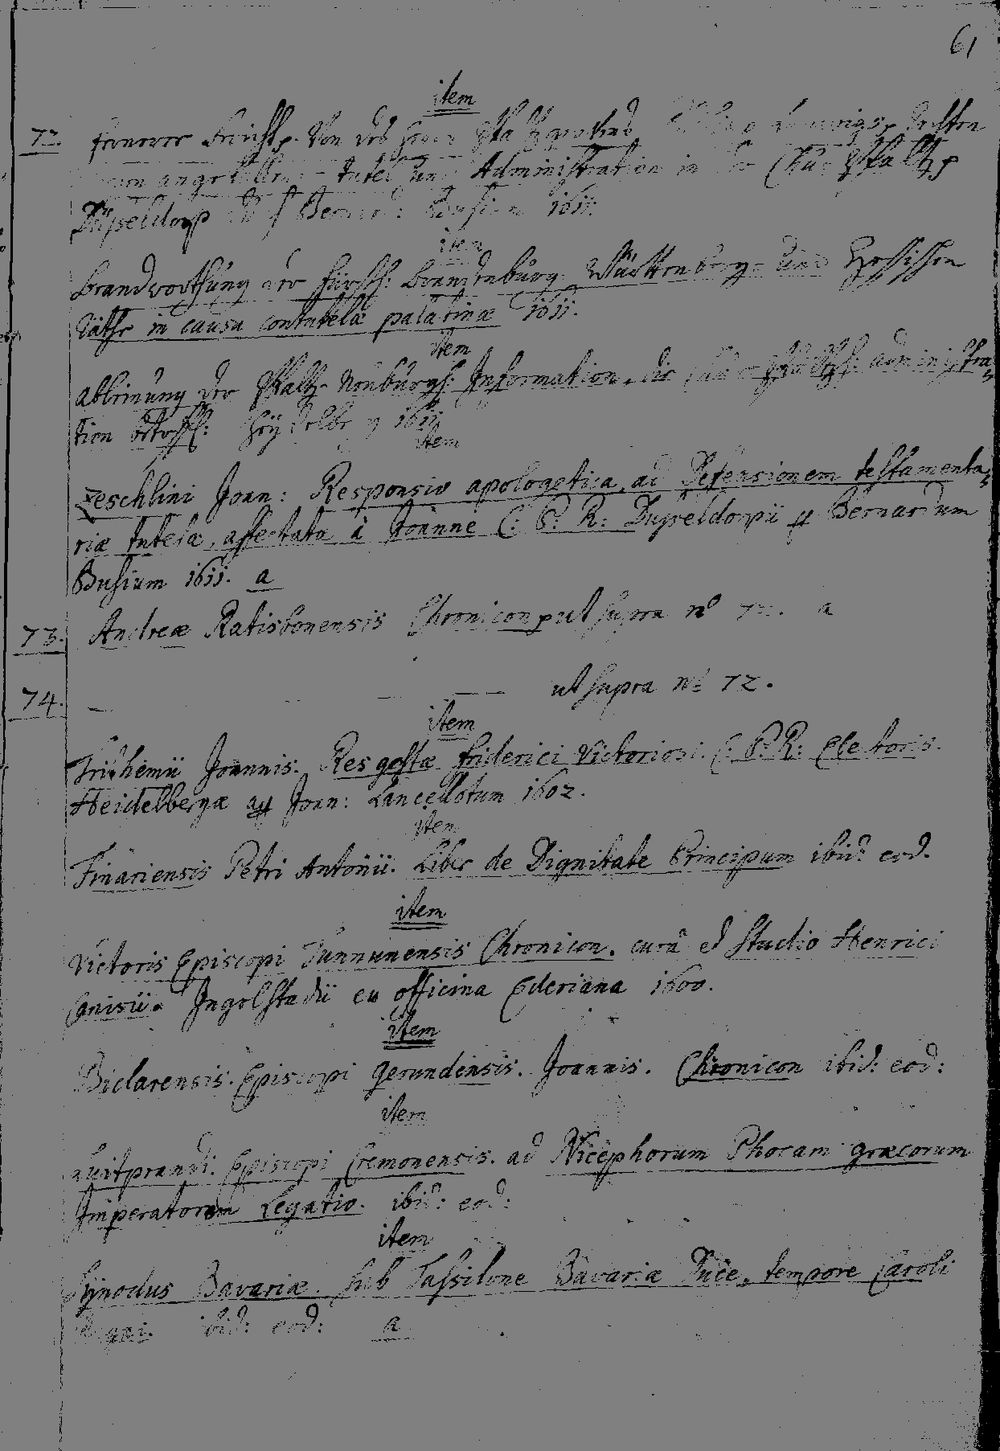 61
item
72. fernerer Bericht. Von des Herrn Pfaltzgrafens
angestelte Tutel und Administration in der Chur Pfaltz
Düsseldorp Bernard: Busium 1611.
item
brandworthung der fürstl: brandenburg Württenberg- und Hessischen
Räthe in causa contutelæ palatinæ 1611.
item
ableinung der Pfaltz Neuburg: Information, die administra
tion betreff: Heydelberg 1611
item
Zeschlini Joan: Responsio apologetica, ad Defensionem testamenta
riæ tutelæ, affectatæ à Joanne C: P: R: Dusseldorpii ap Bernardum
Busium 1611. a
73. Andreæ Ratisbonensis Chronicon ut supra nº 72. a
74. — — — ut supra nº 72.
item
Trithemii Joannis. Res gestæ friderici Victoriosi C: P: R: Electoris.
Heidelbergæ ap Joan: Lancellotum 1602.
item
Finariensis Petri Antonii. Liber de Dignitate Principum ibid: eod.
item
Victoris Episcopi Tunnunensis Chronicon. curâ et studio Henrici
Canisii. Ingolstadii ex officina Ederiana 1600.
item
Biclarensis. Episcopi gerundensis. Joannis. Chronicon ibid: eod:
item
Luitprandi. Episcopi Cremonensis. ad Nicephorum Phocam græcorum
Imperatorem Legatio. ibid: eod:
item
Synodus Bavariæ. sub Tassilone Bavariæ Duce, tempore Caroli
Magni. ibid: eod: a